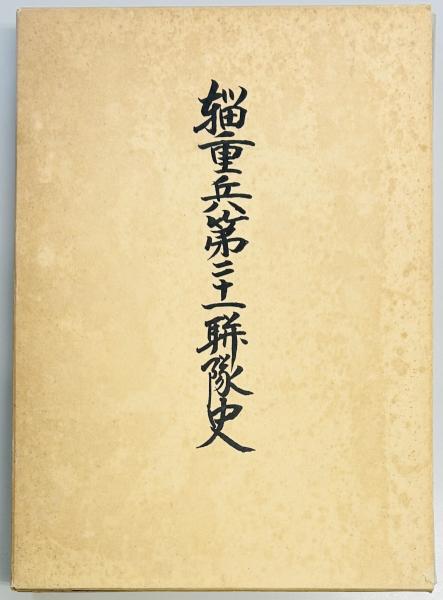 輜重兵第二十一聯隊史